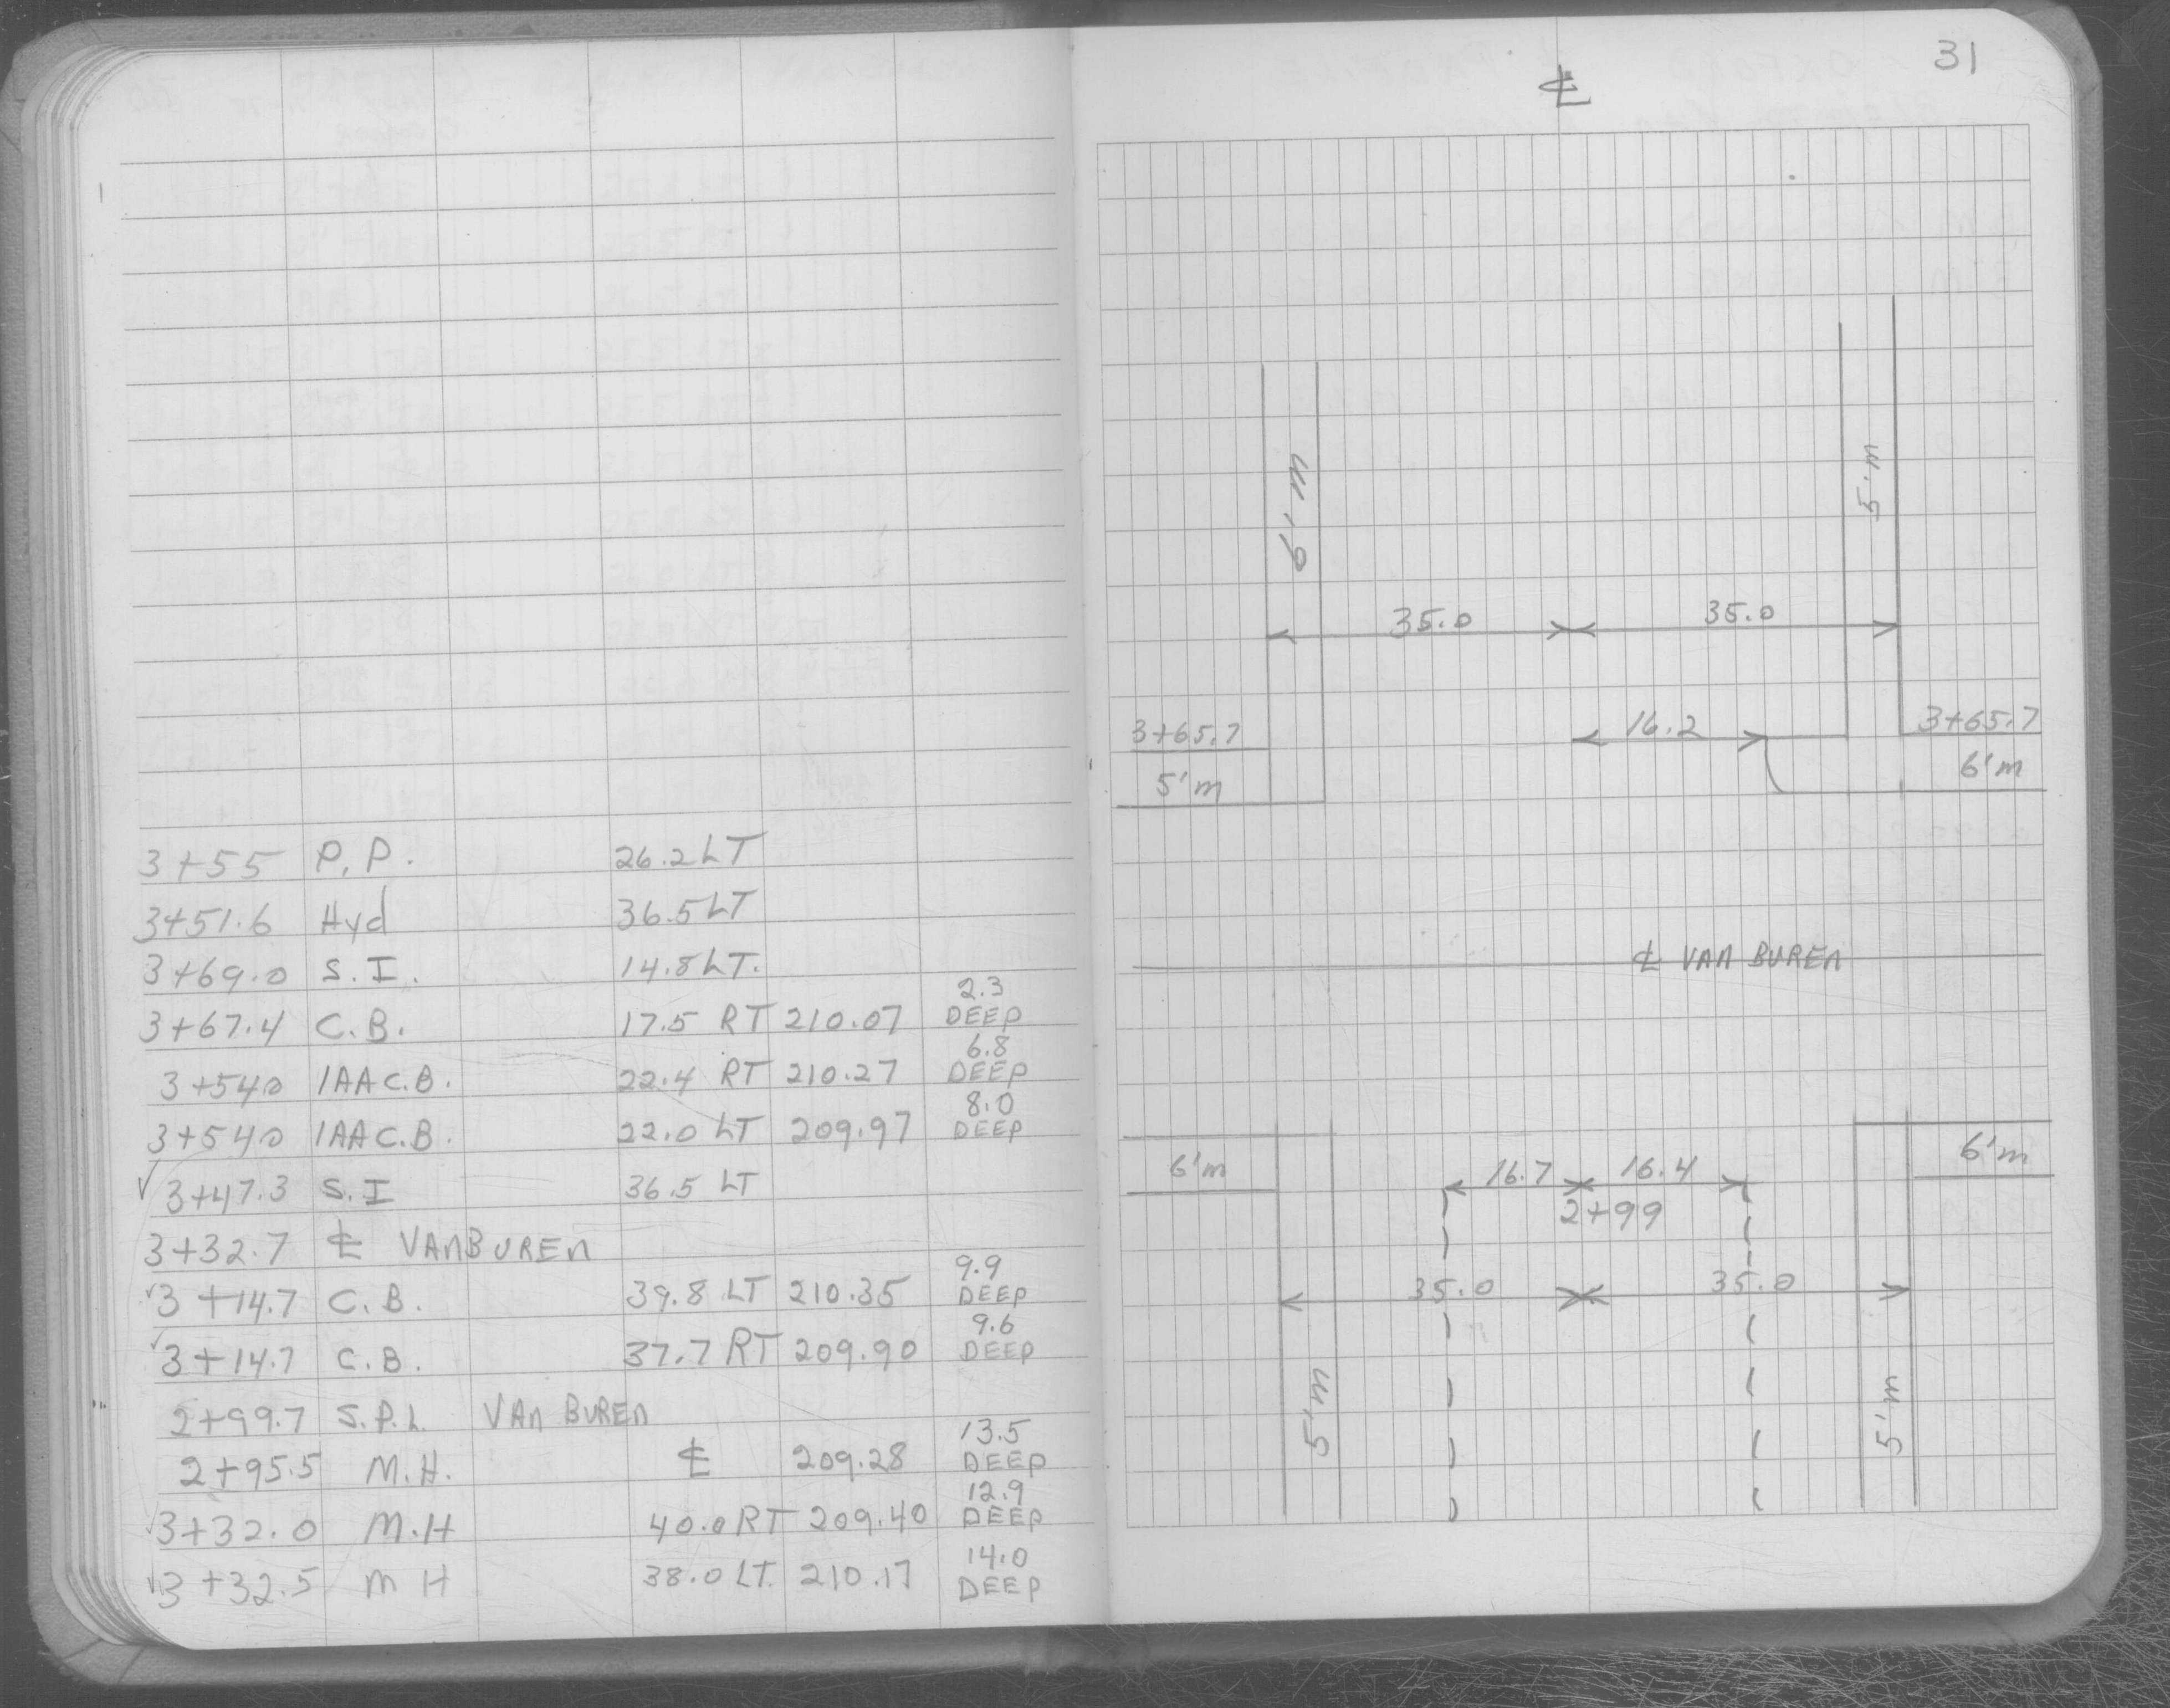 3+55 P.P. 26.2 LT
3+51.6 Hyd 36.5 LT
3+69.0 S.I. 14.8 LT.
3+67.4 C.B. 17.5 RT 210.07 2.3 DEEP
3+540 1AA C.B. 22.4 RT 210.27 6.8 DEEP
3+540 1AA C.B. 22.0 LT 209.97 8.0 DEEP
✓ 3+47.3 S.I 36.5 LT
3+32.7 ℄ VANBUREN
✓3+14.7 C.B. 39.8 LT 210.35 9.9 DEEP
✓3+14.7 C.B. 37.7 RT 209.90 9.6 DEEP
2+99.7 S.P.L. VAN BUREN
2+95.5 M.H. ℄ 209.28 13.5 DEEP
✓3+32.0 M.H 40.0 RT 209.40 12.9 DEEP
✓3+32.5 M H 38.0 LT. 210.17 14.0 DEEP
31
℄
6'm
5'm
35.0 35.0
3+65.7 16.2 3+65.7
5'm 6'm
℄ VAN BUREN
6'm 16.7 16.4 6'm
2+99
35.0 35.0
5'm 5'm